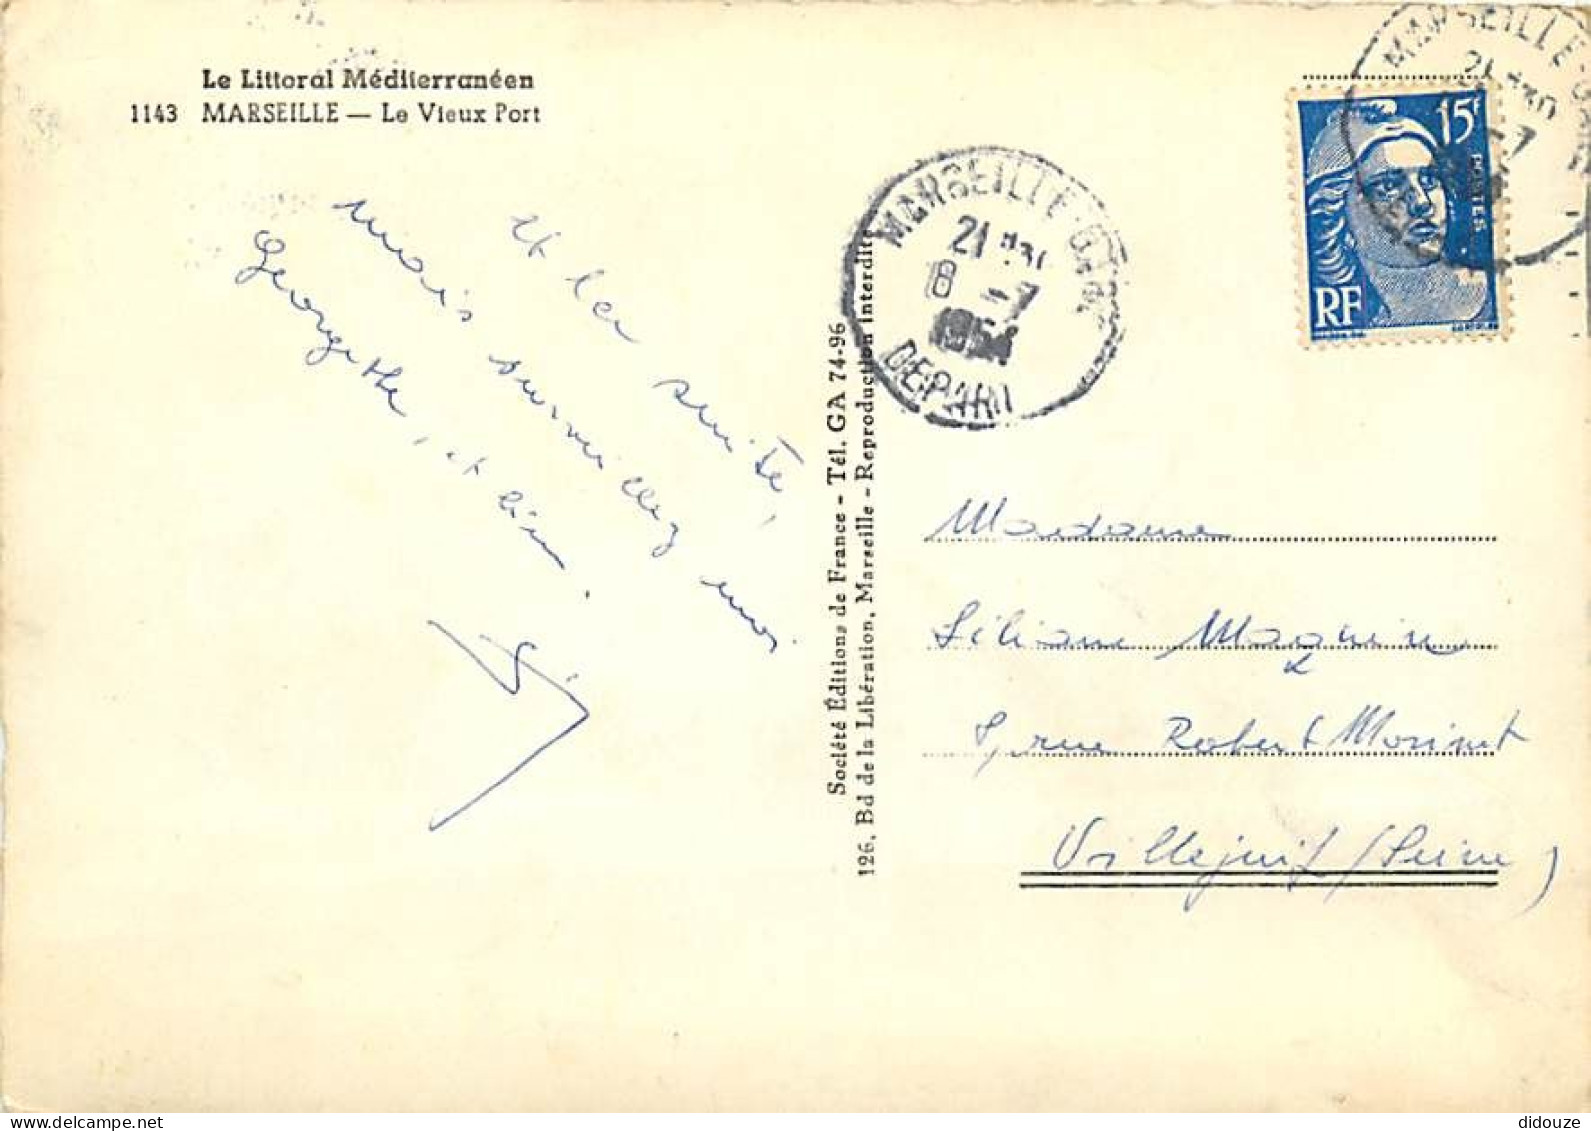 Le Littoral Méditerranéen
1143 MARSEILLE — Le Vieux Port
et la suite,
mais surveillez moi
Georgette, et bien.
Société Éditions de France - Tél. GA 74-96
126, Bd de la Libération, Marseille - Reproduction interdite
MARSEILLE-GARE
21 H30
8 -7
1954
DEPART
MARSEILLE-GARE
21 H30
-7
15F
POSTES
RF
Madame
Liliane Maquin
9, rue Robert Morinet
Villejuif (Seine)
delcampe.net
didouze